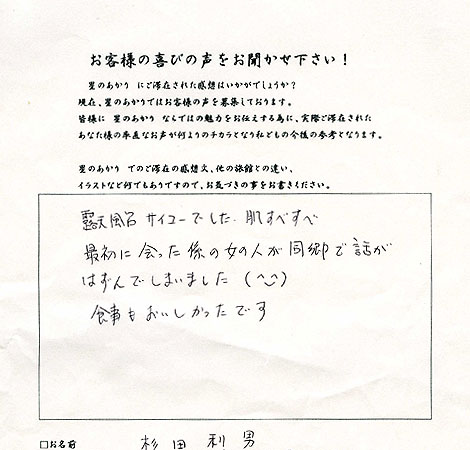 お客様の喜びの声をお聞かせ下さい！
星のあかり にご滞在された感想はいかがでしょうか？
現在、星のあかりではお客様の声を募集しております。
皆様に 星のあかり ならではの魅力をお伝えする為に、実際ご滞在された
あなた様の率直なお声が何よりのチカラとなり私どもの今後の参考となります。
星のあかり でのご滞在の感想文、他の旅館との違い、
イラストなど何でもありですので、お気づきの事をお書きください。
露天風呂 サイコーでした. 肌すべすべ
最初に会った係の女の人が同郷で話が
はずんでしまいました (^^)
食事もおいしかったです
□お名前 杉田利男